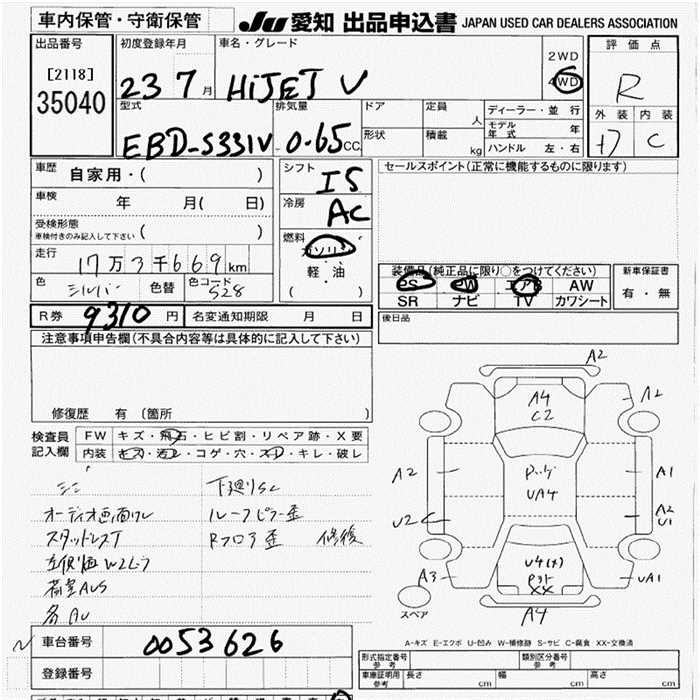 車内保管・守衛保管
JU 愛知 出品申込書 JAPAN USED CAR DEALERS ASSOCIATION
出品番号
[2118]
35040
初度登録年月
23 7月
車名・グレード
HiJET V
2WD
4WD
評価点
R
外装 内装
+7 C
型式
EBD-S331V-
排気量
0.65cc
ドア
定員
人
形状
積載
kg
ディーラー・並行
モデル年式 年
ハンドル 左・右
車歴
自家用・( )
車検
年 月( 日)
受検形態
車検付きのみ記入して下さい ( )
走行
17万3千669km
色
シルバー
色替
色コード
S28
シフト
IS
冷房
AC
燃料
ガソリン
軽・油
( )
セールスポイント(正常に機能するものに限ります)
装備品(純正品に限り○をつけてください)
PS PW エアB AW
SR ナビ TV カワシート
新車保証書
有・無
後日品
R券 9310円
名変通知期限 月 日
注意事項申告欄(不具合内容等は具体的に記入して下さい)
修復歴 有(箇所
検査員記入欄
FW キズ・飛石・ヒビ割・リペア跡・X要
内装 キズ・汚レ・コゲ・穴・スレ・キレ・破レ
シミ
オーディオ画面ワレ
スタッドレスT
荷室AUS
各AU
下廻りSC
ルーフピラー歪
Rフロア歪 修復
A2
A4
C2
A2
A2
A1
UA4
U2 C
A2
U1
A3
UA1
XX
スペア
A4
A-キズ E-エクボ U-凹み W-補修跡 S-サビ C-腐食 XX-交換済
車台番号 0053626
登録番号
形式指定番号
参考
類別区分番号
参考
車庫証明用
参考
長さ cm
幅 cm
高さ cm